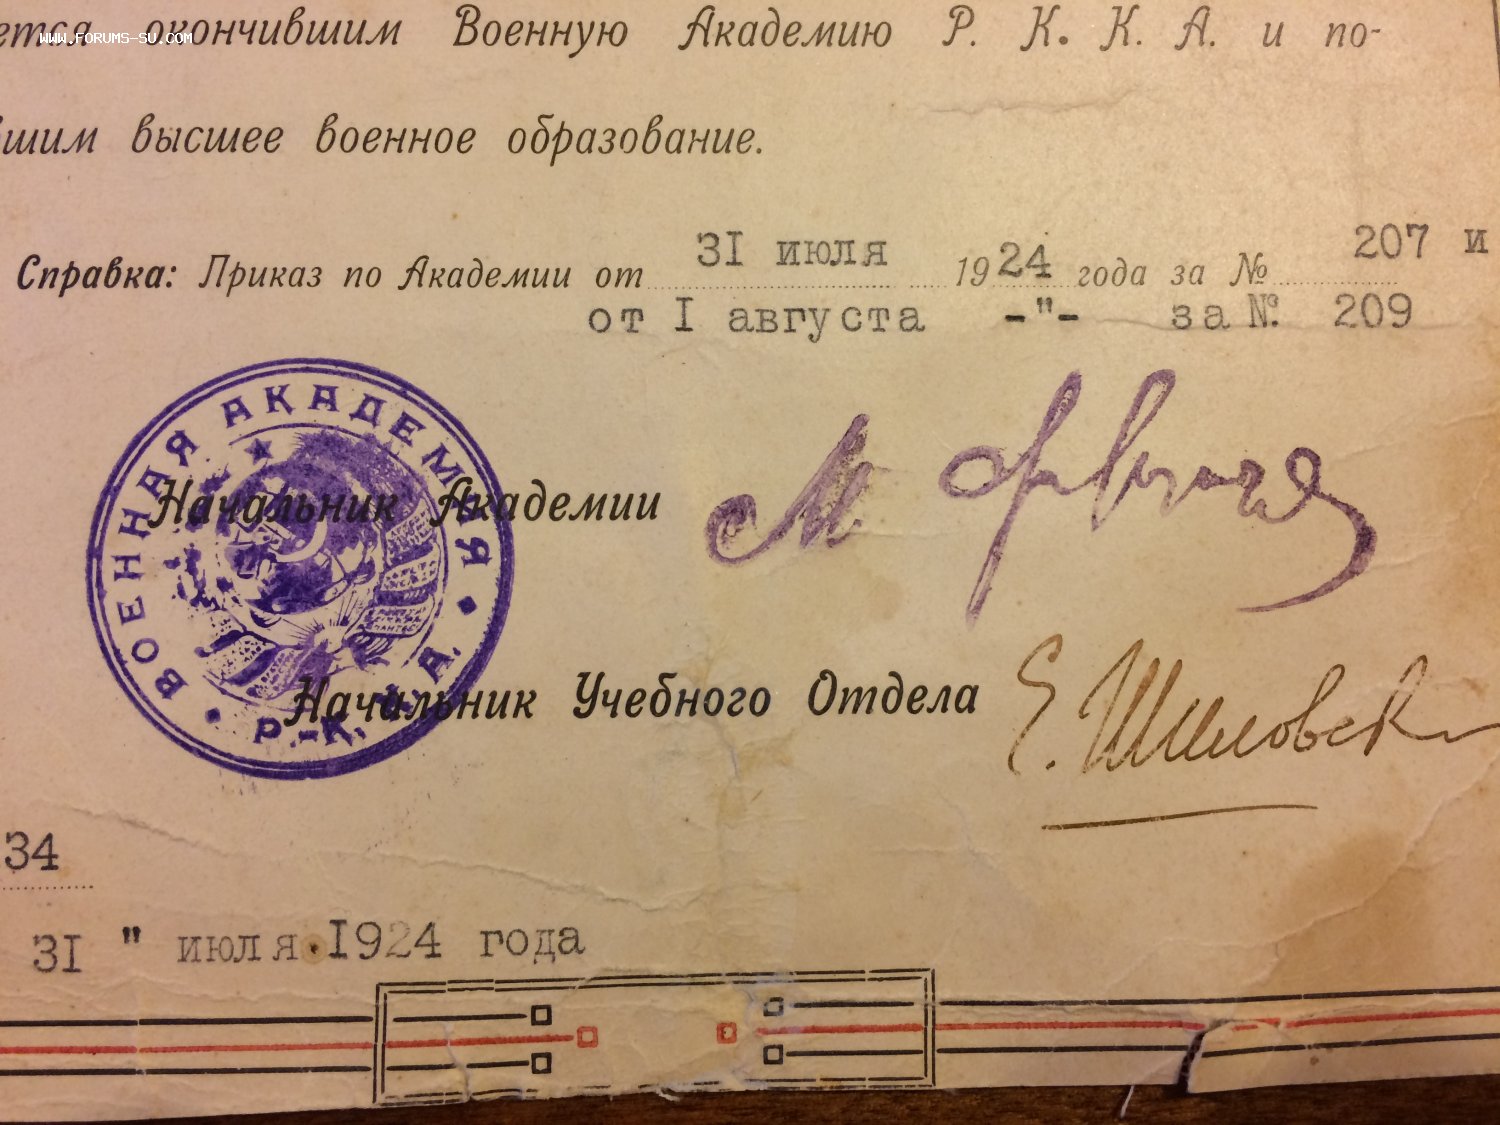 www.forums-su.com
ется окончившим Военную Академию Р. К. К. А. и по-
вшим высшее военное образование.
Справка: Приказ по Академии от 31 июля 1924 года за № 207 и
от I августа -"- за №. 209
ВОЕННАЯ АКАДЕМИЯ
Р.-К.К.А.
Начальник Академии М. Фрунзе
Начальник Учебного Отдела Е. Шиловск
34
31 " июля 1924 года